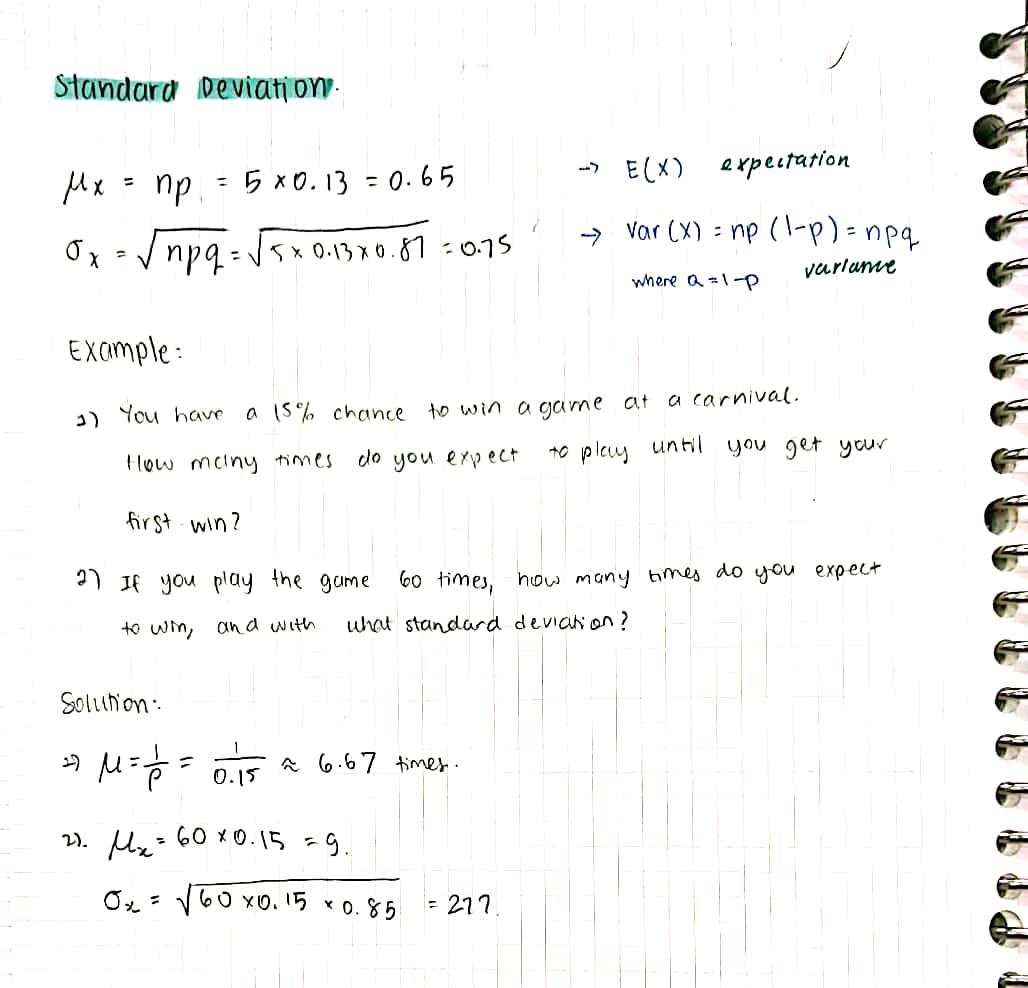 Standard Deviation.
μx = np = 5 x 0.13 = 0.65 → E(X) expectation
σx = √npq = √5 x 0.13 x 0.87 = 0.75 → Var (X) = np (1-p) = npq
where q = 1-p variance
Example:
1) You have a 15% chance to win a game at a carnival.
How many times do you expect to play until you get your
first win?
2) If you play the game 60 times, how many times do you expect
to win, and with what standard deviation?
Solution:
1) μ = 1/p = 1/0.15 ≈ 6.67 times.
2). μx = 60 x 0.15 = 9.
σx = √60 x 0.15 x 0.85 = 277.